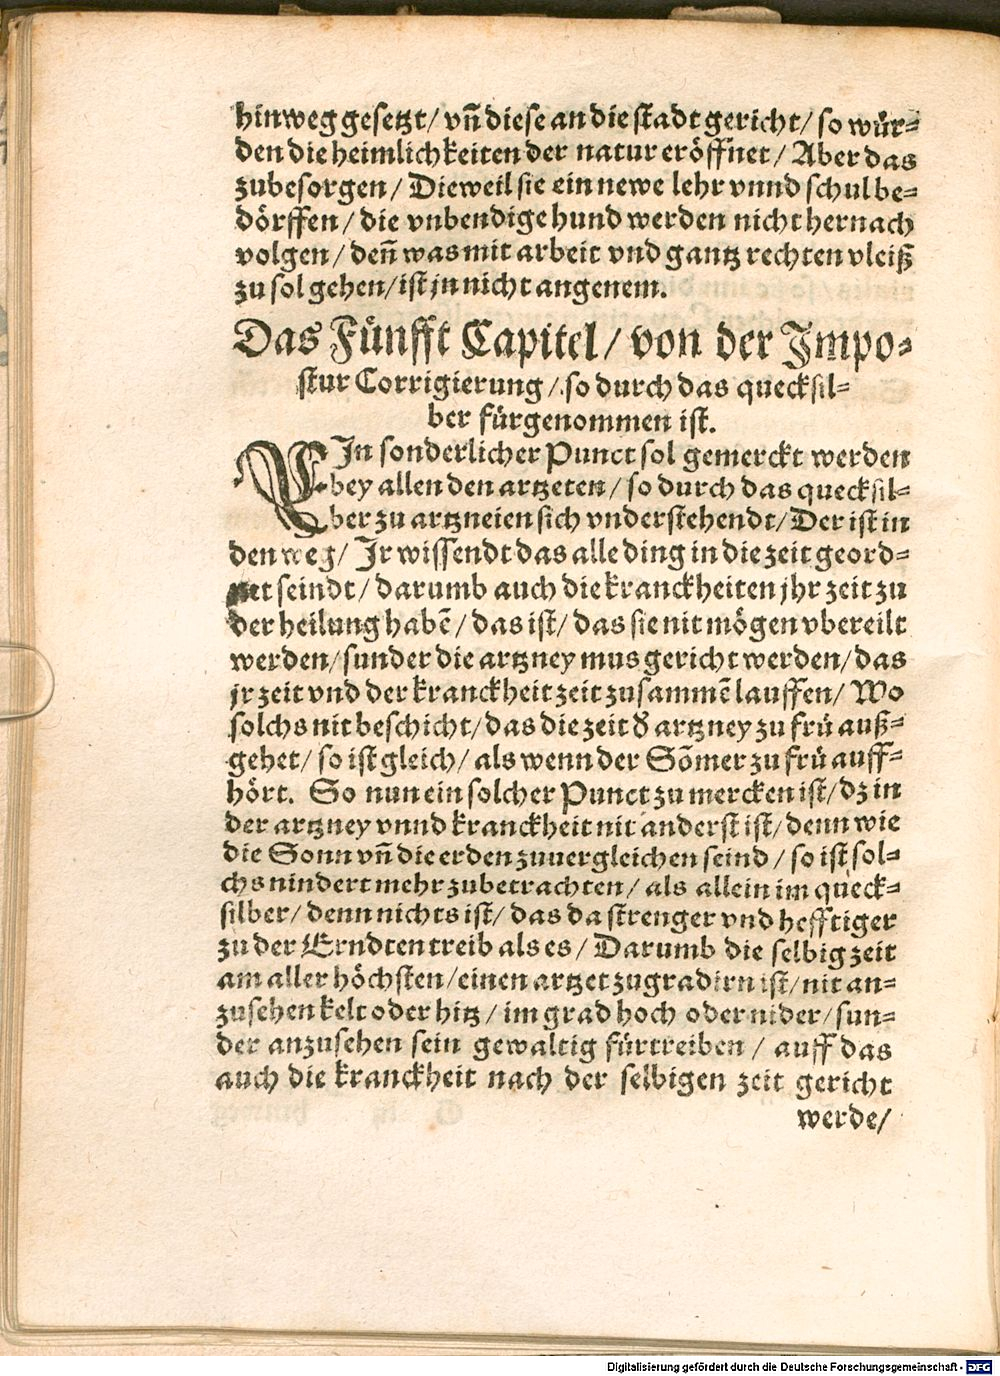 hinweg gesetzt/ vn̄ diese an die stadt gericht/ so wür-
den die heimlichkeiten der natur eröffnet/ Aber das
zubesorgen/ Dieweil sie ein newe lehr vnnd schul be-
dörffen/ die vnbendige hund werden nicht hernach
volgen/ den̄ was mit arbeit vnd gantz rechten vleiß
zu sol gehen/ ist jn nicht angenem.
Das Fünfft Capitel/ von der Impo-
stur Corrigierung/ so durch das quecksil-
ber fürgenommen ist.
EIn sonderlicher Punct sol gemerckt werden
bey allen den artzeten/ so durch das quecksil-
ber zu artzneien sich vnderstehendt/ Der ist in
den weg/ Ir wissendt das alle ding in die zeit geord-
net seindt/ darumb auch die kranckheiten jhr zeit zu
der heilung habē/ das ist/ das sie nit mögen vbereilt
werden/ sunder die artzney mus gericht werden/ das
jr zeit vnd der kranckheit zeit zusammē lauffen/ Wo
solchs nit beschicht/ das die zeit ð artzney zu frü auß-
gehet/ so ist gleich/ als wenn der Som̄er zu frü auff-
hört. So nun ein solcher Punct zu mercken ist/ dz in
der artzney vnnd kranckheit nit anderst ist/ denn wie
die Sonn vn̄ die erden zuuergleichen seind/ so ist sol-
chs nindert mehr zubetrachten/ als allein im queck-
silber/ denn nichts ist/ das da strenger vnd hefftiger
zu der Erndten treib als es/ Darumb die selbig zeit
am aller höchsten/ einen artzet zugradirn ist/ nit an-
zusehen kelt oder hitz/ im grad hoch oder nider/ sun-
der anzusehen sein gewaltig fürtreiben/ auff das
auch die kranckheit nach der selbigen zeit gericht
werde/
Digitalisierung gefördert durch die Deutsche Forschungsgemeinschaft - DFG